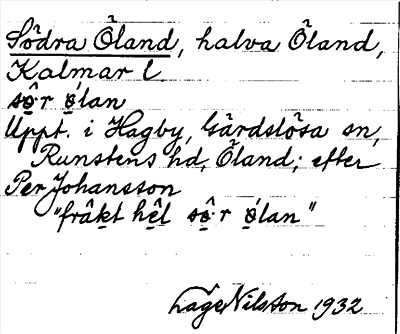 Södra Öland, halva Öland,
Kalmar l
sø̂r ǿlan
Uppt. i Hagby, Gärdslösa sn,
Runstens hd, Öland; efter
Per Johansson
"frâkt hêl sø̂r ǿlan"
Lage Nilsson 1932